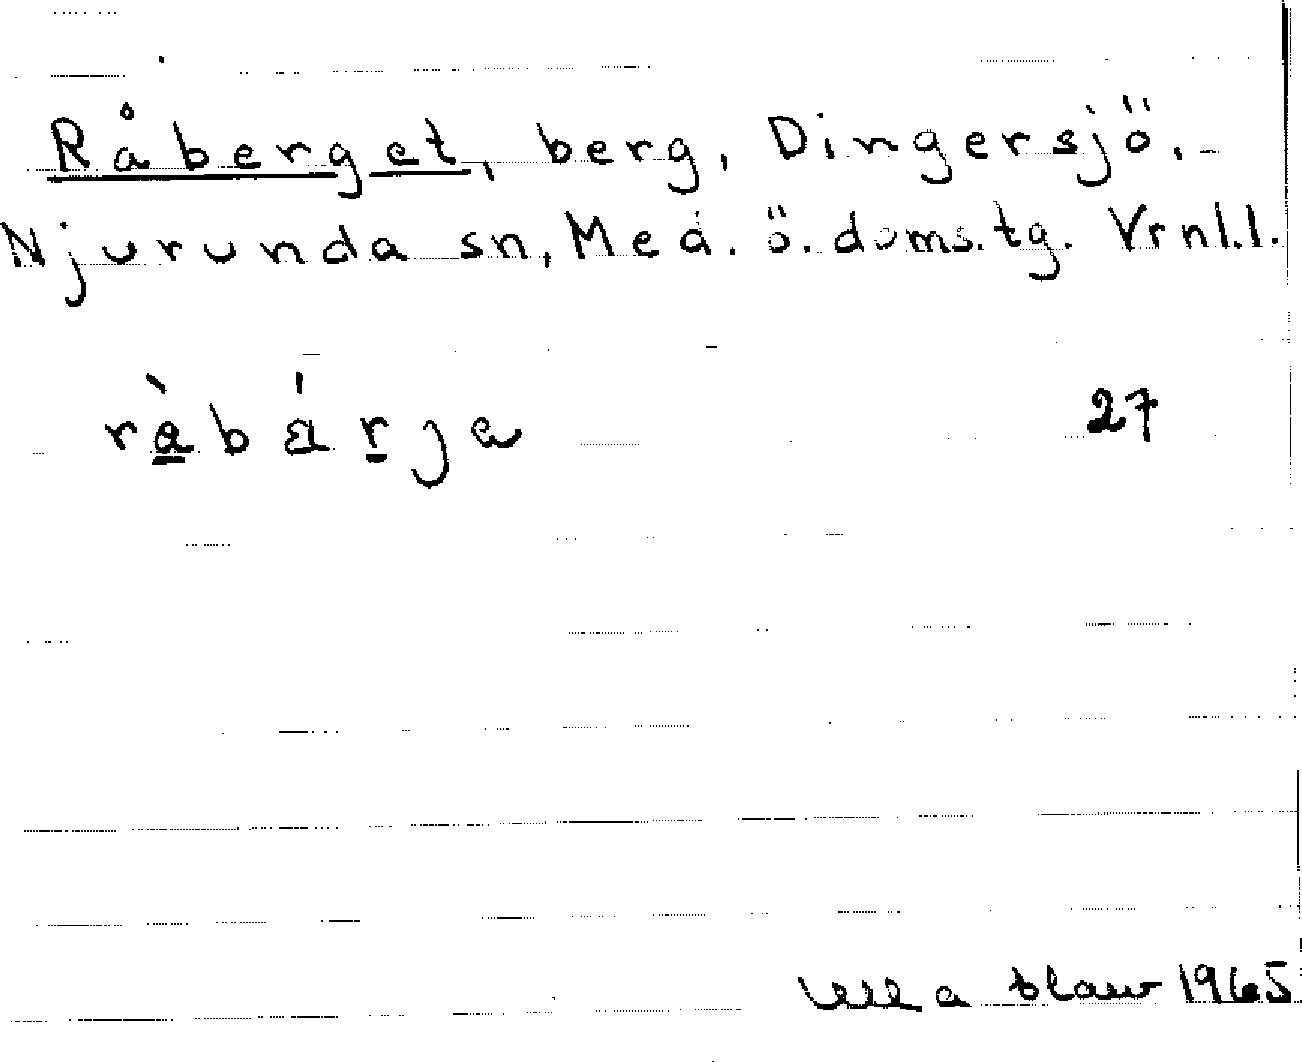 Råberget, berg, Dingersjö.-
Njurunda sn, Med. ö. doms.tg. Vrnl.l.
ràbárja 27
1965